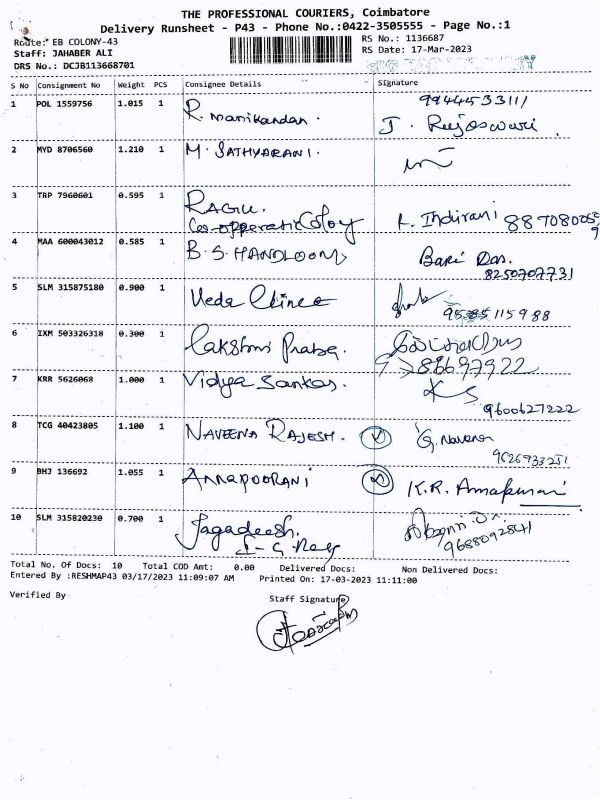 THE PROFESSIONAL COURIERS, Coimbatore
Delivery Runsheet - P43 - Phone No.:0422-3505555 - Page No.:1
Route: EB COLONY-43
RS No.: 1136687
Staff: JAHABER ALI
RS Date: 17-Mar-2023
DRS No.: DCJB113668701
S No Consignment No Weight PCS Consignee Details Signature
1 POL 1559756 1.015 1 R. Manikandan. 9944533111
J. Rejoswari
2 MYD 8706560 1.210 1 M. SATHYARANI.
3 TRP 7960601 0.595 1 RAGIU.
Co-opperatic Colony
K. Indirani
4 MAA 600043012 0.585 1 B.S. HANDLOOM
Bari Das.
8250707731
5 SLM 315875180 0.900 1 Veda Clinec
9585115988
6 IXM 503326318 0.300 1 Lakshmi Praba.
7 KRR 5626068 1.000 1 Vidya Sankar. KS
9600627222
8 TCG 40423805 1.100 1 NAVEENA RAJESH. G. Naveena
9626933251
9 BHJ 136692 1.055 1 ANNAPOORANI K.R. Annapurani
10 SLM 315820230 0.700 1 Jagadeesh.
9688092841
Total No. Of Docs: 10 Total COD Amt: 0.00 Delivered Docs: Non Delivered Docs:
Entered By :RESHMAP43 03/17/2023 11:09:07 AM Printed On: 17-03-2023 11:11:00
Verified By Staff Signature